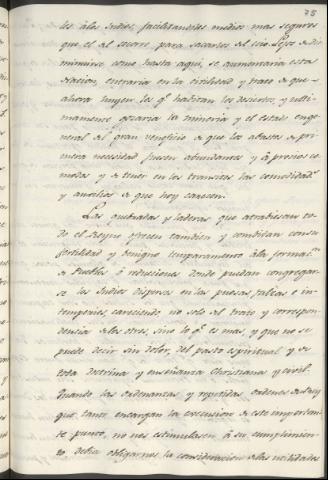 75
les álos Indios, facilitandoles medios mas seguros
que el al socorro para sacarlos del ocio. Lejos de dis
minuirse como hasta aqui, se aumentaria esta
Nacion, entraria en la civilidad y trato de que
ahora huyen los qᵉ habitan los desiertos, y ulti-
mamente gozaria la mineria y el estado en ge
neral del gran veneficio de que los abastos de pri-
mera necesidad fuesen abundantes y á precios co
modos y de tener en los transitos las comodidadˢ
y auxilios de que hoy carecen.
Las quebradas y laderas que atrabiesan to-
do el Reyno ofrecen tambien y combidan con su
fertilidad y benigno temperamento á la formacᵒⁿ
de Pueblos ó reduciones donde puedan congregar
se los Indios dispersos en las punas, faldas e in-
temperies, careciendo no solo del trato y correspon-
dencia de los otros, sino lo qᵉ es mas, y que no se
puede decir sin dolor, del pasto espiritual y de
toda doctrina y enseñanza Christiana y civil.
Quando las ordenanzas y repetidas ordenes
que tanto encargan la execucion de este importan-
te punto, no nos estimulasen á su cumplimien-
to debia obligarnos la consideracion de las utilidades